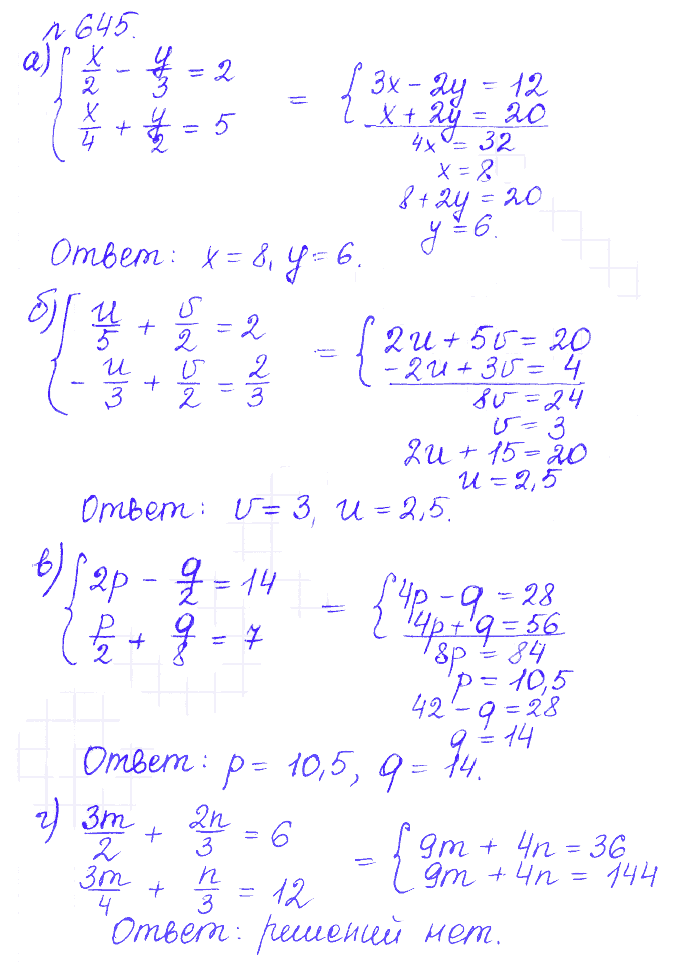 № 645.
а) { x/2 - y/3 = 2 = { 3x - 2y = 12
x/4 + y/2 = 5 x + 2y = 20
4x = 32
x = 8
8 + 2y = 20
y = 6.
Ответ: x = 8, y = 6.
б) { u/5 + v/2 = 2 = { 2u + 5v = 20
- u/3 + v/2 = 2/3 -2u + 3v = 4
8v = 24
v = 3
2u + 15 = 20
u = 2,5
Ответ: v = 3, u = 2,5.
в) { 2p - q/2 = 14 = { 4p - q = 28
p/2 + q/8 = 7 4p + q = 56
8p = 84
p = 10,5
42 - q = 28
q = 14
Ответ: p = 10,5, q = 14.
г) 3m/2 + 2n/3 = 6 = { 9m + 4n = 36
3m/4 + n/3 = 12 9m + 4n = 144
Ответ: решений нет.